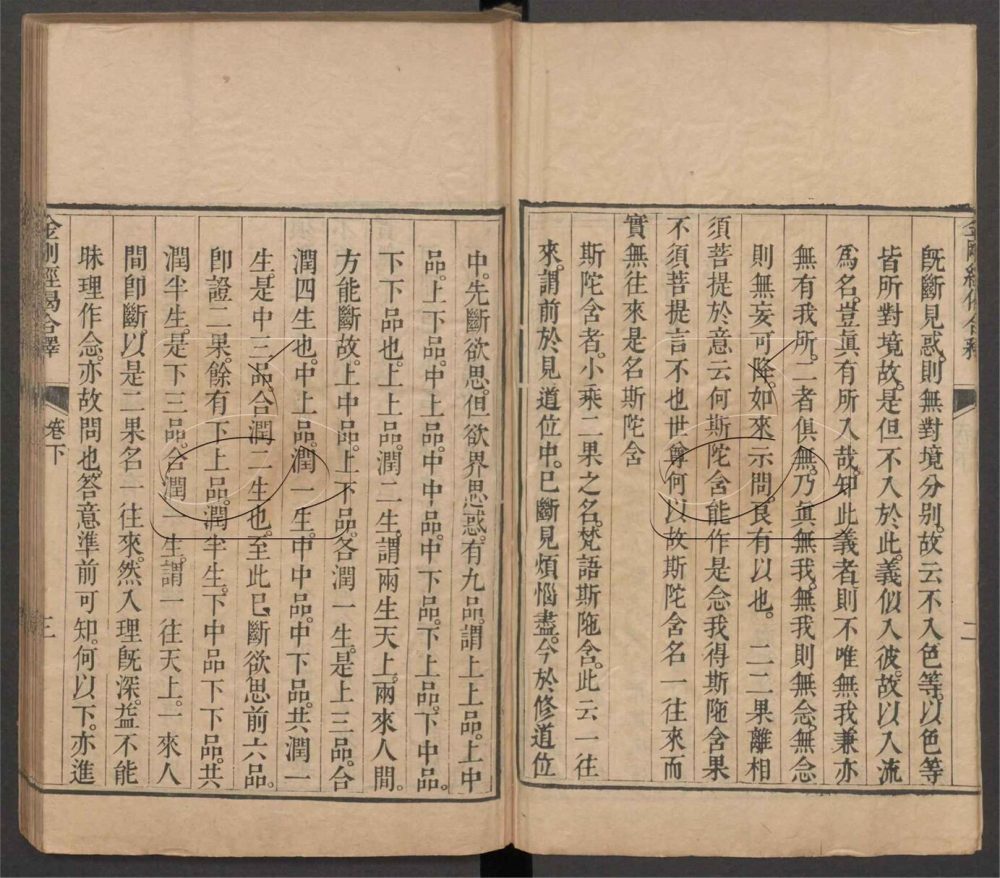 既斷見惑。則無對境分別。故云不入色等。以色等
皆所對境故。是但不入於此。義似入彼。故以入流
爲名。豈眞有所入哉。知此義者則不唯無我兼亦
無有我所。二者俱無。乃眞無我。無我則無念。無念
則無妄可降。如來示問。良有以也。 二二果離相
須菩提於意云何斯陀含能作是念我得斯陁含果
不須菩提言不也世尊何以故斯陀含名一往來而
實無往來是名斯陀含
斯陀含者。小乘二果之名。梵語斯陁含。此云一往
來。謂前於見道位中。已斷見煩惱盡。今於修道位
二
中。先斷欲思。但欲界思惑有九品。謂上上品。上中
品。上下品。中上品。中中品。中下品。下上品。下中品。
下下品也。上上品。潤二生。謂兩生天上。兩來人間。
方能斷故。上中品。上下品。各潤一生。是上三品。合
潤四生也。中上品。潤一生。中中品。中下品。共潤一
生。是中三品合潤二生也。至此已斷欲思前六品。
卽證二果。餘有下上品。潤半生。下中品下下品。共
潤半生。是下三品。合潤一生。謂一往天上。一來人
間卽斷。以是二果名一往來。然入理旣深。葢不能
昧理作念。亦故問也。答意準前可知。何以下。亦進
金剛經偈合釋 卷下 三